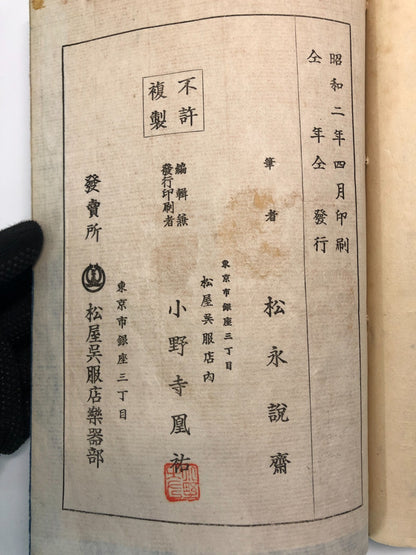 昭和二年四月印刷
仝　年仝　發行
筆者
松永說齋
不許
複製
編輯兼
發行印刷者
東京市銀座三丁目
松屋吳服店內
小野寺凰祐
發賣所
東京市銀座三丁目
松屋吳服店樂器部